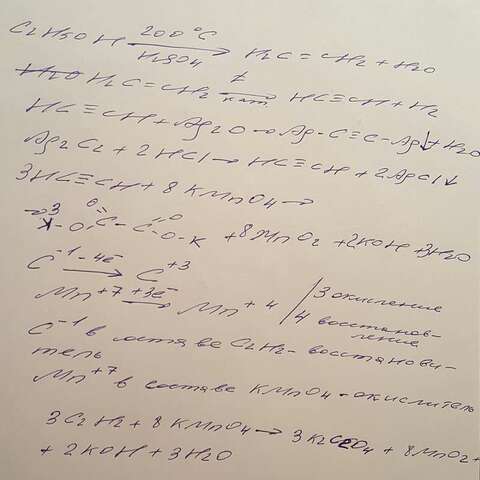 C2H5OH 200°C H2SO4 → H2C = CH2 + H2O
H2O H2C = CH2 t кат. → HC≡CH + H2
HC≡CH + Ag2O → Ag-C≡C-Ag↓ + H2O
Ag2C2 + 2HCl → HC≡CH + 2AgCl↓
3HC≡CH + 8KMnO4 →
→ 3 K-O-C(=O)-C(=O)-O-K + 8MnO2 + 2KOH + 3H2O
C⁻¹ -4e̅ → C⁺³ | 3 окисление
Mn⁺⁷ +3e̅ → Mn⁺⁴ | 4 восстанов-
ление
C⁻¹ в составе C2H2 - восстанови-
тель
Mn⁺⁷ в составе KMnO4 - окислитель
3C2H2 + 8KMnO4 → 3K2C2O4 + 8MnO2 +
+ 2KOH + 3H2O